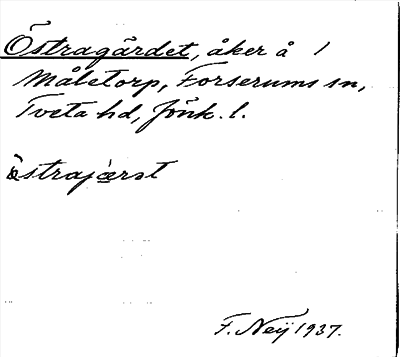 Östragärdet, åker å 1
Måletorp, Forserums sn,
Tveta hd, Jönk. l.
östrajærət
F. Neij 1937.